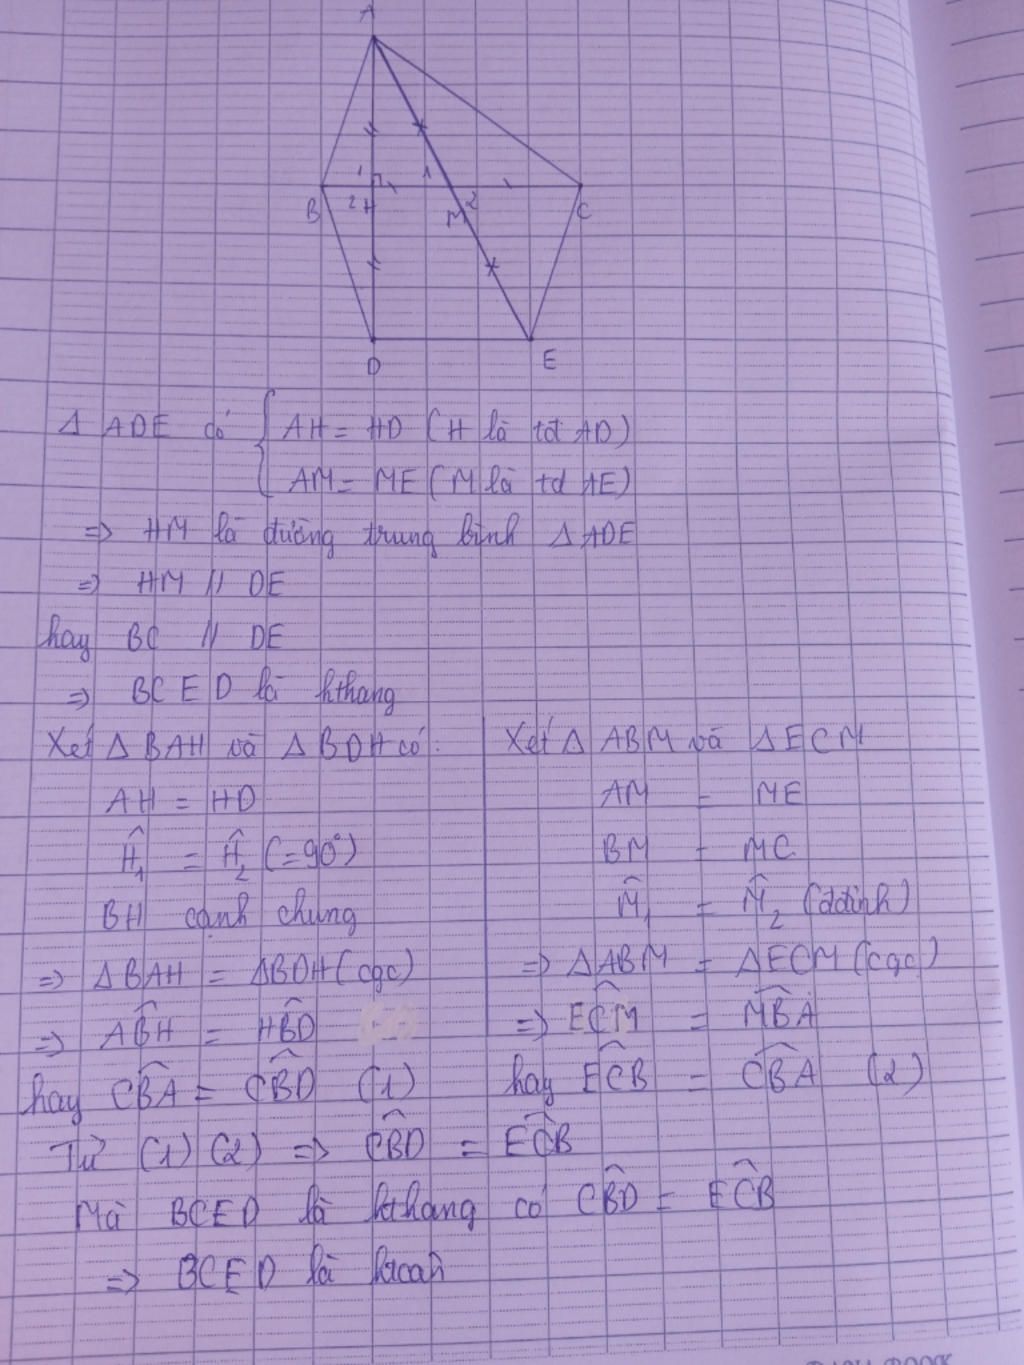 A
1
1
B
2
H
M
2
C
D
E
Δ ADE có { AH = HD (H là tđ AD)
AM = ME (M là tđ AE)
=> HM là đường trung bình Δ ADE
=> HM // DE
hay BC // DE
=> BCED là hthang
Xét Δ BAH và Δ BDH có:
AH = HD
Ĥ₁ = Ĥ₂ (=90°)
BH cạnh chung
=> ΔBAH = ΔBDH (cgc)
=> AB̂H = HB̂D
hay CB̂A = CB̂D (1)
Xét Δ ABM và ΔECM
AM = ME
BM = MC
M̂₁ = M̂₂ (đđỉnh)
=> ΔABM = ΔECM (cgc)
=> EĈM = MB̂A
hay EĈB = CB̂A (2)
Từ (1) (2) => CB̂D = EĈB
Mà BCED là hthang có CB̂D = EĈB
=> BCED là htcân